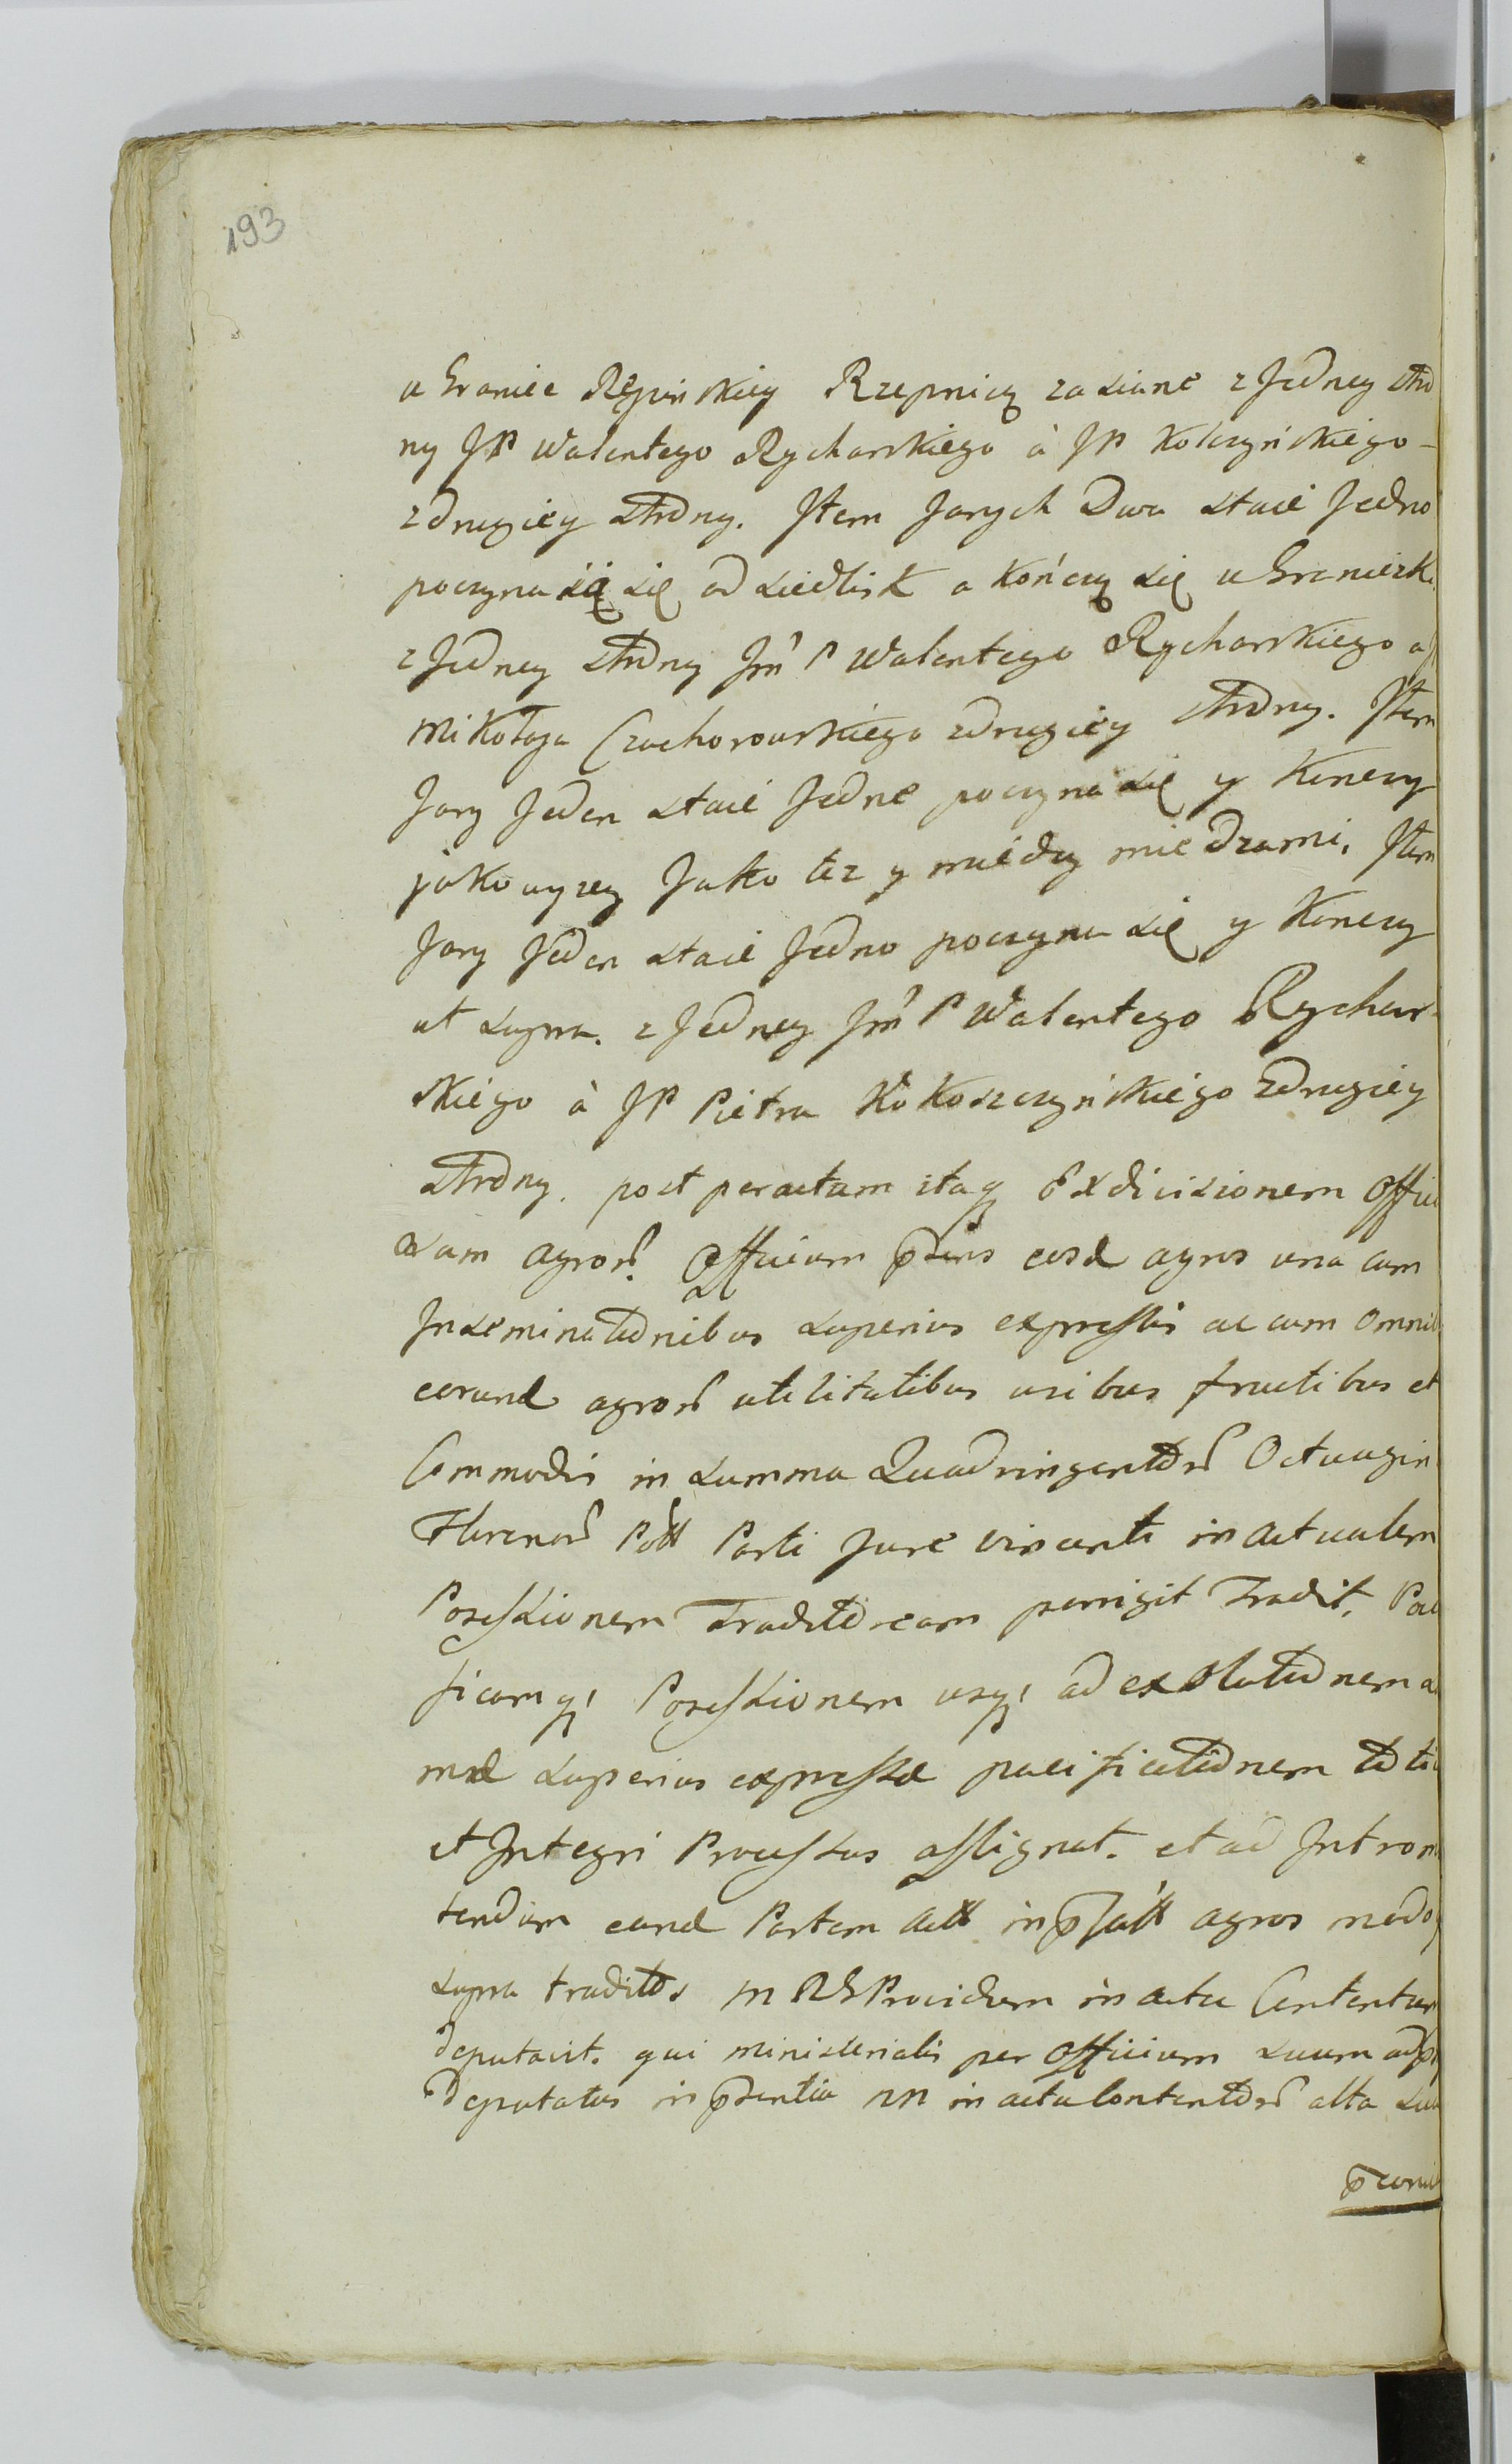 193
u Granice Rępińskiey Rzepnicą zasiane z Jedney stro
ny JP Walentego Rycharskiego à JP Kolczyńskiego -
zdrugiey strony. Jtem Jarych Dwa staie Jedno
poczyna się od siedlisk a Kończą się u Graniczk
z Jedney strony Jm̃ P Walentego Rycharskiego a
Mikołaja Czachorowskiego zdrugiey strony. Jtem
Jary Jeden staie Jedne poczyna się y Konczy
jako wyzey Jako tez y miedzy miedzami. Jtem
Jary Jeden staie Jedno poczyna się y Konczy
ut supra. z Jedney Jm̃ P Walentego Rychar-
skiego à JP Pietra Kokoszczyńskiego zdrugiey
strony. post peractam itaq Exdivisionem Offici
osam agror. Officium p̃sens eosd agros una cum
Jnseminationibus superius expressis ac cum Omnib
eorund agror utilitatibus usibus fructibus et
Commodis in summa Quadringentor Octuagin
Florenor Poll Parti Jure vincenti in actualem
Possessionem Traditoream porrigit Tradit. Paci
ficamq; Possessionem usq; ad exolutionem a
mod superius expressæ pacificationem toti
et Jntegri Processus assignat. et ad Jntrom
tendum eand Partem Act in p̃fatt agros modo
supra traditos M RG Providum in actu Contentum
deputavit. qui ministerialis per Officium suum adp
Deputatus in p̃sentia NN in actu Contentor alta su
p̃coni